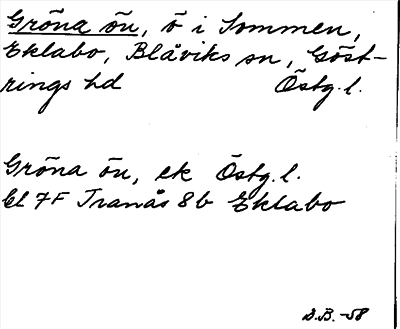 Gröna ön, ö i Sommen,
Eklabo, Blåviks sn, Göst-
rings hd Östg. l.
Gröna ön, ek Östg. l.
bl 7F Tranås 8b Eklabo
B.B. -58